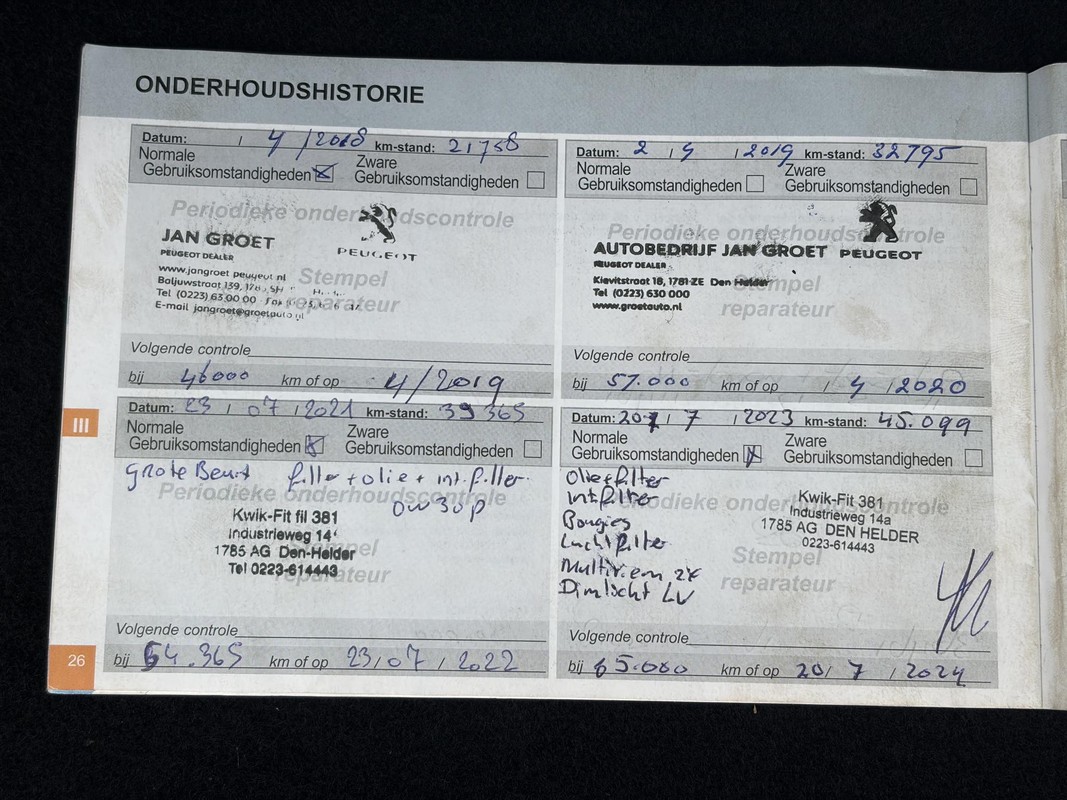 ONDERHOUDSHISTORIE
Datum: / 4 / 2018 km-stand: 21758
Normale Gebruiksomstandigheden
Zware Gebruiksomstandigheden
Periodieke onderhoudscontrole
JAN GROET
PEUGEOT DEALER
PEUGEOT
www.jangroet peugeot.nl
Baljuwstraat 139,
Tel (0223) 63 00 00
E-mail jangroet@groetauto.nl
Stempel
reparateur
Volgende controle
bij 46000 km of op 4/2019
Datum: 2 / 4 / 2019 km-stand: 32795
Normale Gebruiksomstandigheden
Zware Gebruiksomstandigheden
Periodieke onderhoudscontrole
AUTOBEDRIJF JAN GROET PEUGEOT
PEUGEOT DEALER
Kievitstraat 18, 1781 ZE Den Helder
Tel (0223) 630 000
www.groetauto.nl
Stempel
reparateur
Volgende controle
bij 57.000 km of op / 4 / 2020
III
Datum: 23 / 07 / 2021 km-stand: 39365
Normale Gebruiksomstandigheden
Zware Gebruiksomstandigheden
Grote Beurt filter + olie + int. filter.
0W30P
Periodieke onderhoudscontrole
Kwik-Fit fil 381
Industrieweg 14
1785 AG Den-Helder
Tel 0223-614443
Stempel
reparateur
Volgende controle
bij 54.365 km of op 23/07 / 2022
Datum: 20 / 7 / 2023 km-stand: 45.099
Normale Gebruiksomstandigheden
Zware Gebruiksomstandigheden
Olie+filter
Int.filter
Bougies
Luchtfilter
Multiriem 2x
Dimlicht LV
Periodieke onderhoudscontrole
Kwik-Fit 381
Industrieweg 14a
1785 AG DEN HELDER
0223-614443
Stempel
reparateur
Volgende controle
bij 65.000 km of op 20/ 7 / 2024
26